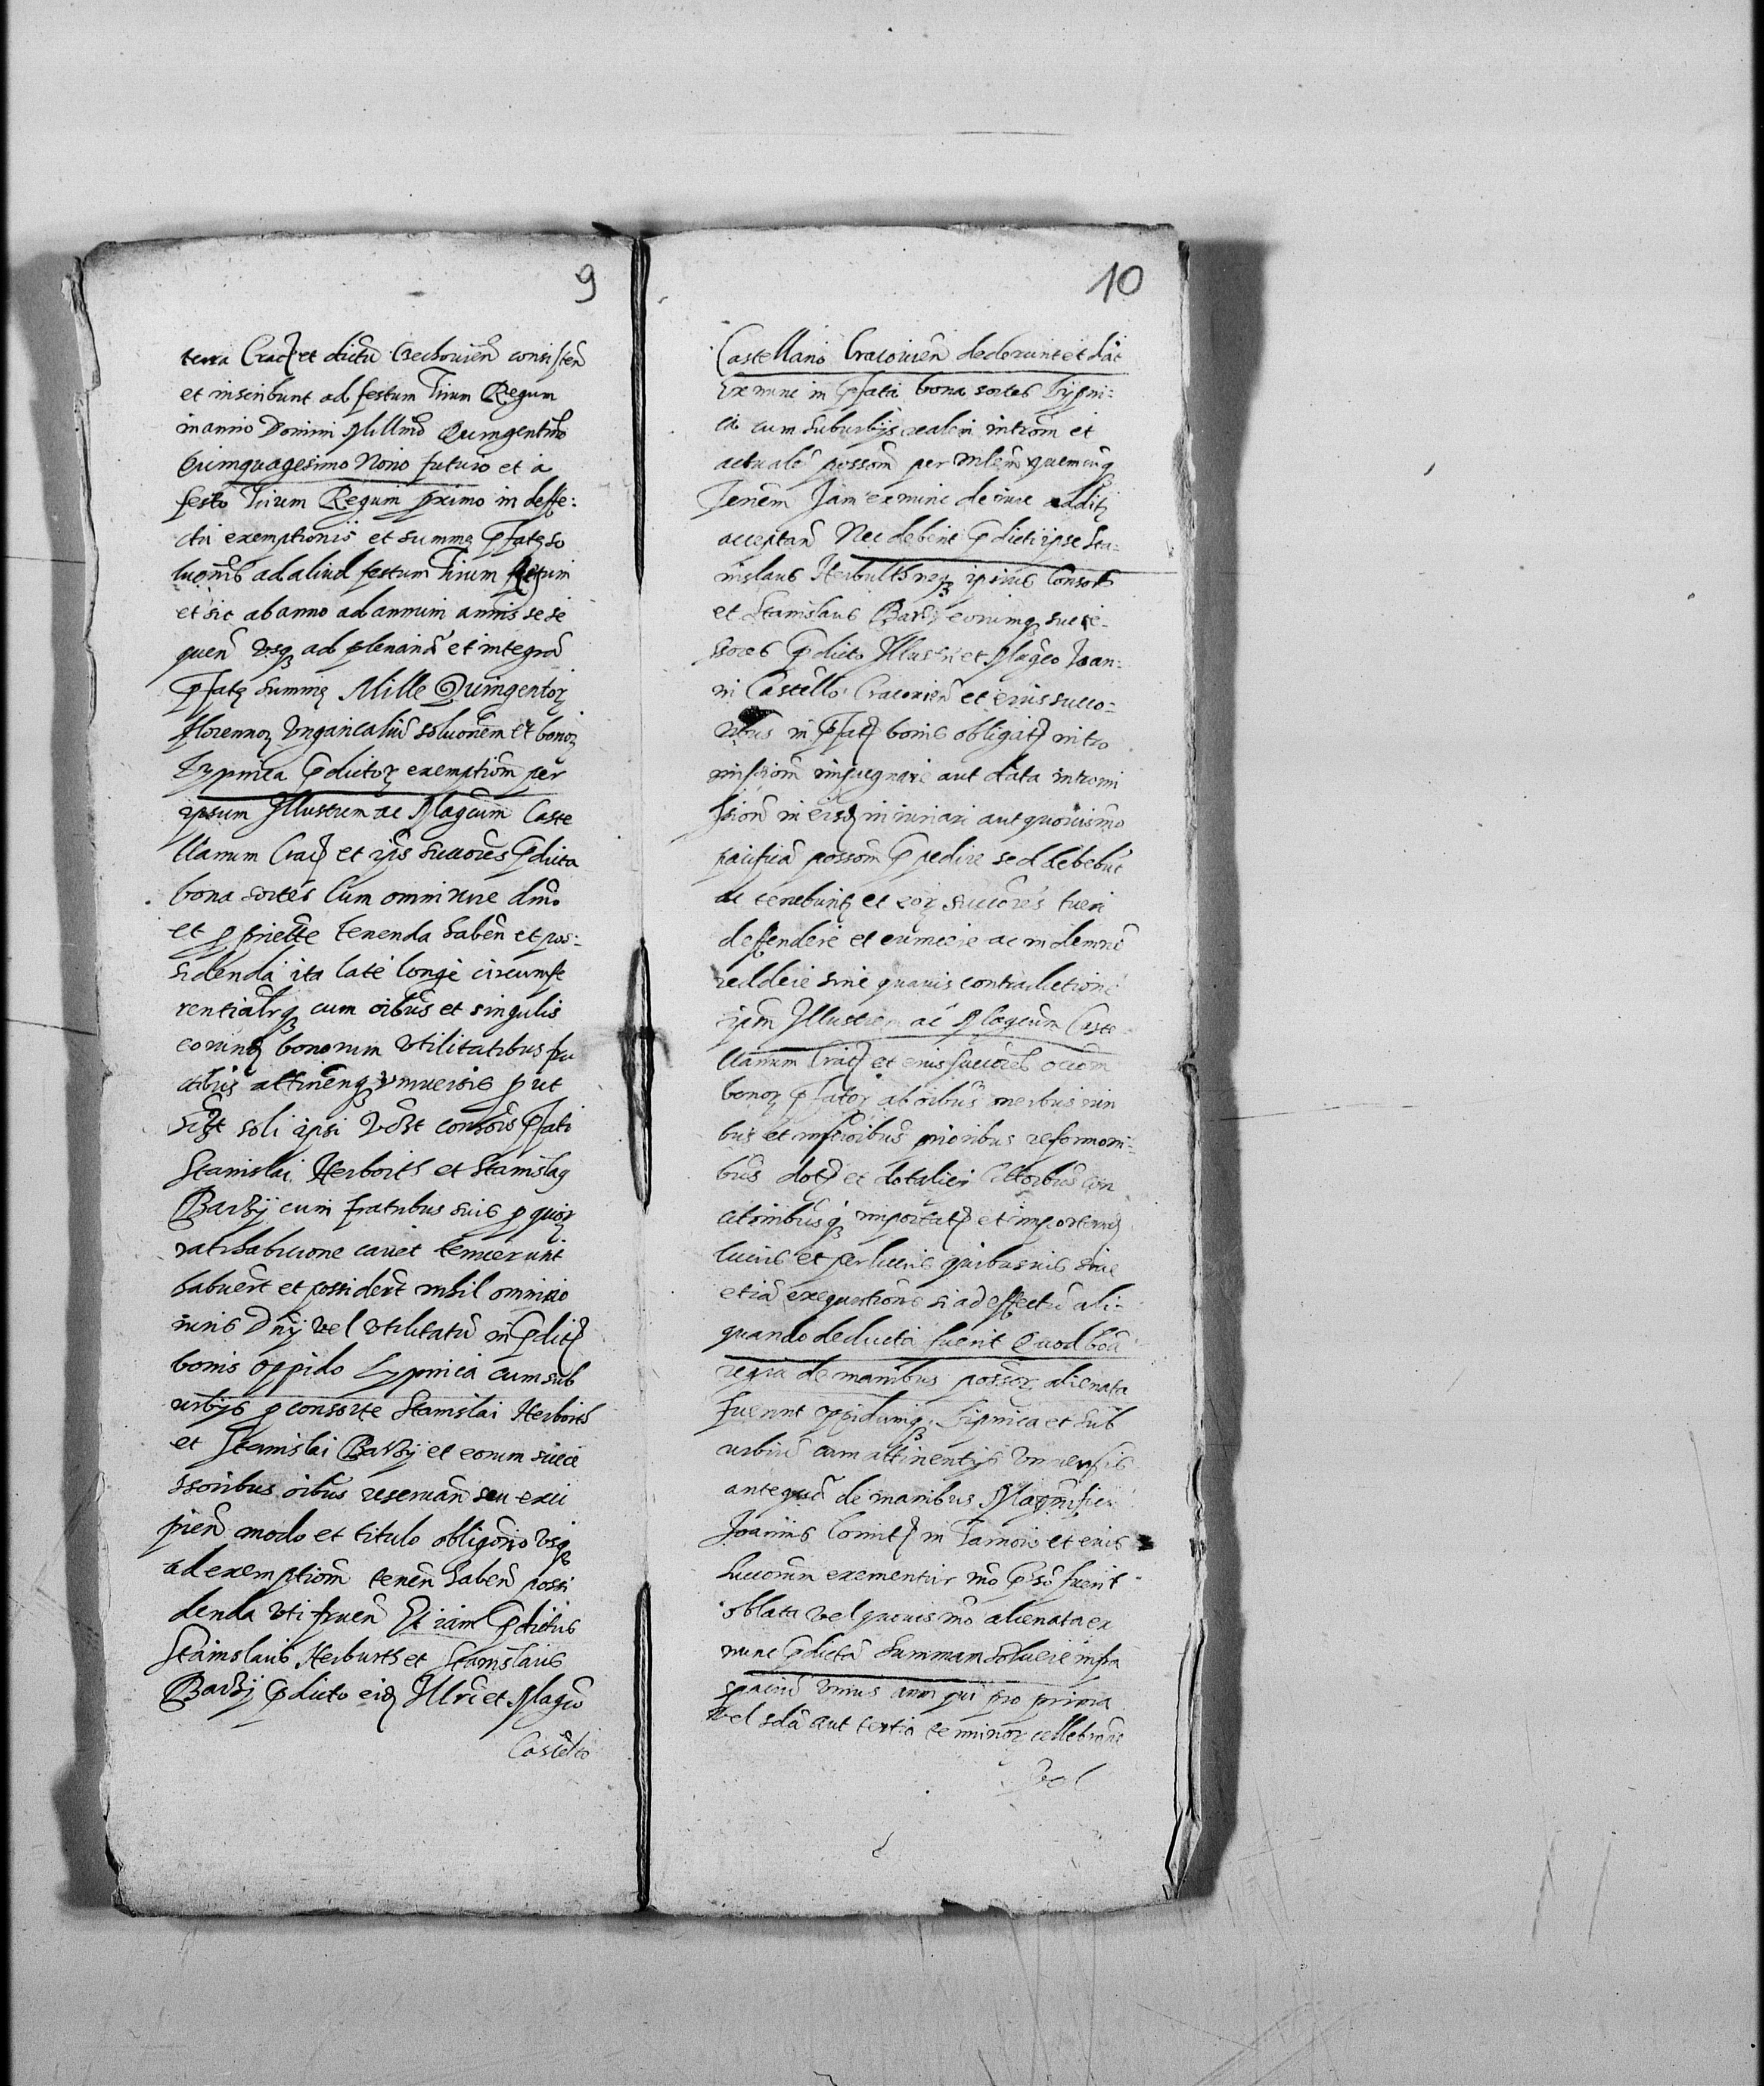 9
terra Crac et dictu Czechouien consisten
et inscribunt ad festum Trium Regum
in anno Domini Millmo Quingentmo
Quinquagesimo Nono futuro et a
festo Trium Regum primo in deffe:
ctu exemptionis et summe pfate so
luonis ad aliud festum Trium Regum
et sic ab anno ad annum annis se se
quen usq ad plenariã et integrã
pfate summe Mille Quingentor
florenor Ungaricaliũ soluonem et bonor
Lypnica pdictor exemptiom per
ipsum Illustrem ac Magcum Caste
llanum Crac et ips succores pdicta
bona sortes Cum omni iure dmo
et pprietate tenenda haben et pos:
sidenda ita late longe circumfe
rentialrq cum oibus et singulis
eorund bonorum utilitatibus fru
ctibus attinenq universis put
soli ipsi consors pfati
Stanislai Herborth et Stanislaq
Barzy cum fratribus suis p quor
ratihabicione cavet tenuerunt
habuert et possidert nihil omnino
iuris Dny vel utilitatũ in pdict
bonis oppido Lypnica cum sub
urbys p consorte Stanislai Herborth
et Stanislai Barzy et eorum succe
ssoribus oibus reseruan seu exci
pien modo et titulo obligonis usq
ad exemptiom tenen haben possi
denda uti fruen Et iam pdictus
Stanislaus Herburth et Stanislaus
Barzy pdicto eid Illri et Magco
Castello
10
Castellano Cracouien dederunt et dãt
Ex nunc in pfata bona sortes Lypni:
ca cum suburbys realem introm et
actualẽ possom per mlem quemcunq
Jenem Jam ex nunc de iure addit
acceptan Nec debent pdicti ipse Sta:
nislaus Herbulth neq ipsius Consors
et Stanislaus Barzy eorumq succe-
ssores pdicto Illustri et Magco Joan:
ni Castello Cracovien et eius succo=
ribus in pfat bonis obligat intro
missiom impugnare aut data intromi
ssione in eisd iniuriari aut quovismo
pacificã possom ppedire sed debebũt
ac tenebunt et eor succores tueri
deffendere et euincere ac indemnẽ
reddere sine quauis contradictione
ipm Illustrem ac Magcum Caste
llanum Crac et eius succores
bonor pfator ab oibus
bus et prioribus reformoni:
bus dot et dotalici
importat et importan
lucris et perlucris quibusuis siue
etiã exequtione si ad effectũ ali:
quando deducta fuerit Quod bõa
regia de manibus possor alienata
fuerint oppidumq Lipnica et sub
urbiũ cum attinentys universis
antequã de manibus Magnifici
Joannis Comit in Tarnow et eius
succorum exementur mo pso fuerit
oblata vel quouis mo alienata ex
nunc pdictã summam soluere infra
spaciũ unius anni qui pro prima
vel sda aut tertio terminor cellebrone
Vel